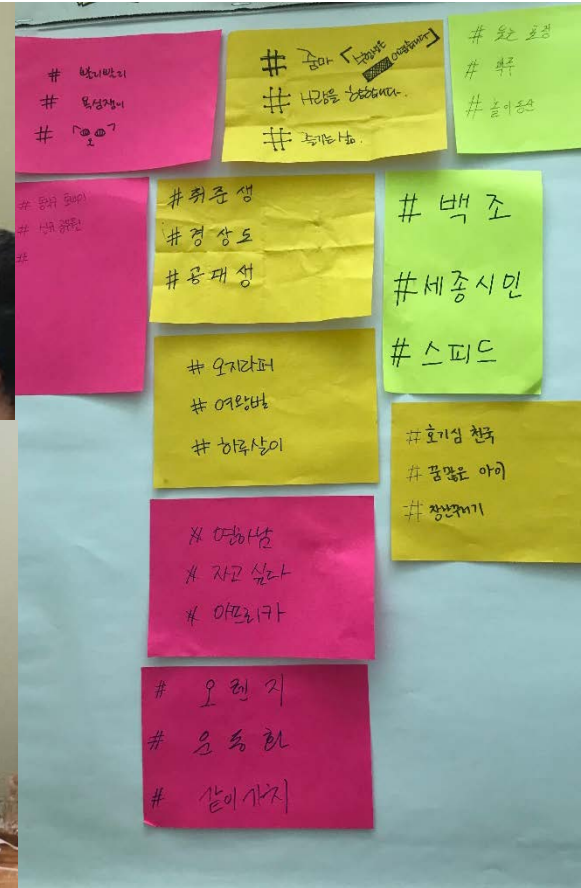 # 빨리빨리
# 욕심쟁이
#
# 줌마
# 사랑을 합니다.
#
#
# 맥주
# 놀이동산
#
#
#
# 취준생
# 경상도
# 공대생
# 백조
# 세종시민
# 스피드
# 오지라퍼
# 여왕벌
# 하루살이
# 호기심 천국
# 꿈많은 아이
# 장난꾸러기
# 연하남
# 자고 싶다
# 아프리카
# 오렌지
# 운동화
# 같이가치